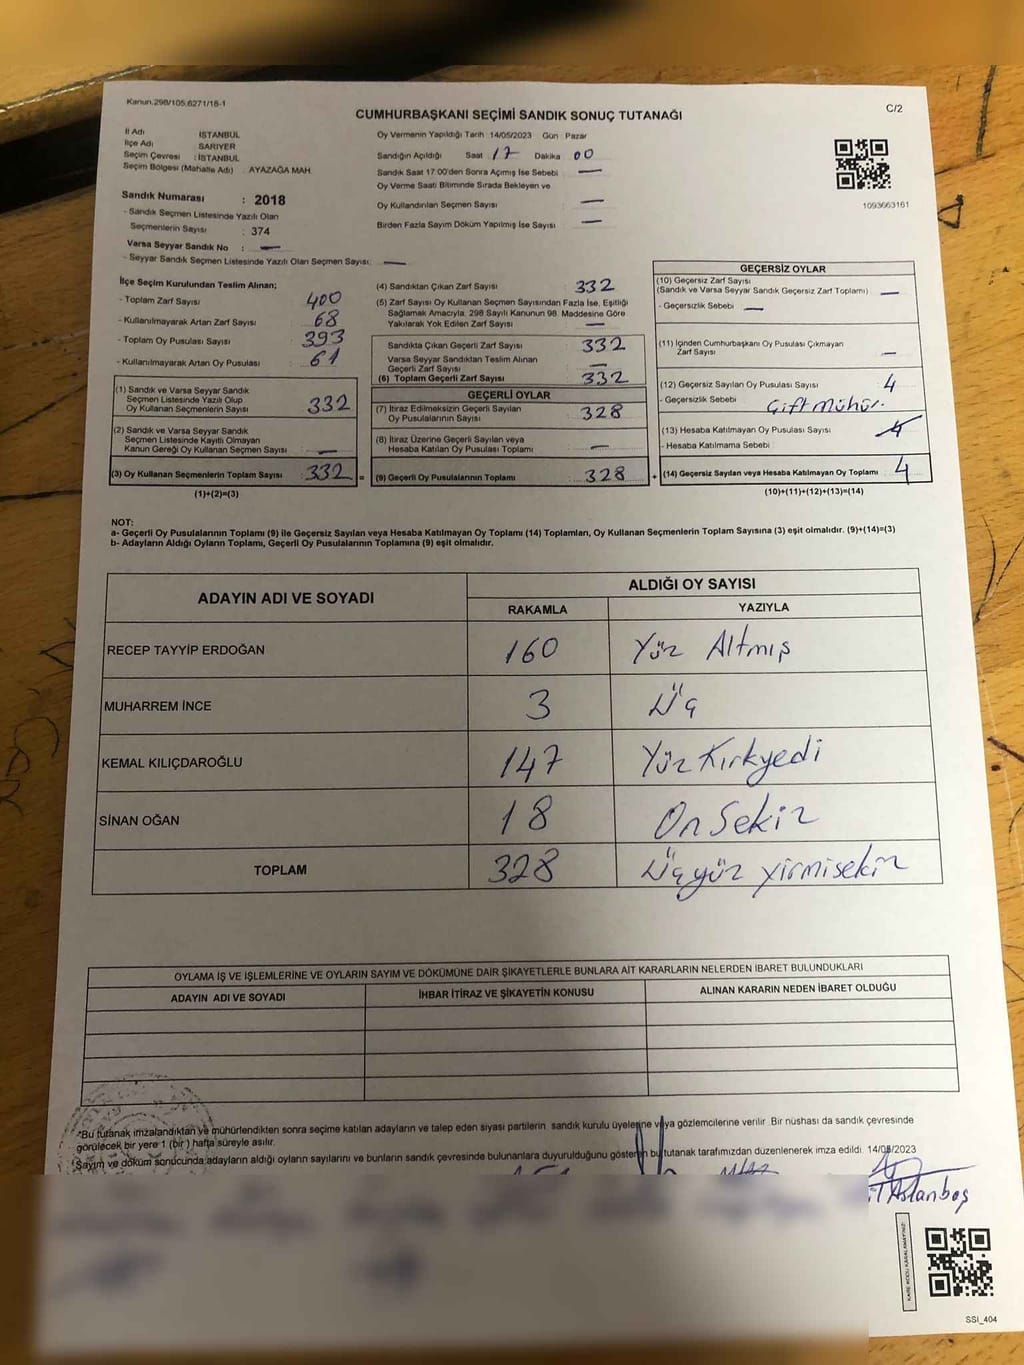 Kanun.298/105,6271/18-1
C/2
CUMHURBAŞKANI SEÇİMİ SANDIK SONUÇ TUTANAĞI
İl Adı İSTANBUL
İlçe Adı SARIYER
Seçim Çevresi : İSTANBUL
Seçim Bölgesi (Mahalle Adı) : AYAZAĞA MAH.
Sandık Numarası : 2018
- Sandık Seçmen Listesinde Yazılı Olan
Seçmenlerin Sayısı : 374
Varsa Seyyar Sandık No : —
- Seyyar Sandık Seçmen Listesinde Yazılı Olan Seçmen Sayısı: —
Oy Vermenin Yapıldığı Tarih : 14/05/2023 Gün : Pazar
Sandığın Açıldığı Saat 17 Dakika 00
Sandık Saat 17:00'den Sonra Açılmış İse Sebebi : —
Oy Verme Saati Bitiminde Sırada Bekleyen ve
Oy Kullandırılan Seçmen Sayısı : —
Birden Fazla Sayım Döküm Yapılmış İse Sayısı : —
1093663161
İlçe Seçim Kurulundan Teslim Alınan;
- Toplam Zarf Sayısı : 400
- Kullanılmayarak Artan Zarf Sayısı : 68
- Toplam Oy Pusulası Sayısı : 393
- Kullanılmayarak Artan Oy Pusulası : 61
(1) Sandık ve Varsa Seyyar Sandık
Seçmen Listesinde Yazılı Olup
Oy Kullanan Seçmenlerin Sayısı : 332
(2) Sandık ve Varsa Seyyar Sandık
Seçmen Listesinde Kayıtlı Olmayan
Kanun Gereği Oy Kullanan Seçmen Sayısı : —
(3) Oy Kullanan Seçmenlerin Toplam Sayısı : 332 =
(1)+(2)=(3)
(4) Sandıktan Çıkan Zarf Sayısı : 332
(5) Zarf Sayısı Oy Kullanan Seçmen Sayısından Fazla İse, Eşitliği
Sağlamak Amacıyla, 298 Sayılı Kanunun 98. Maddesine Göre
Yakılarak Yok Edilen Zarf Sayısı : —
Sandıkta Çıkan Geçerli Zarf Sayısı : 332
Varsa Seyyar Sandıktan Teslim Alınan
Geçerli Zarf Sayısı : —
(6) Toplam Geçerli Zarf Sayısı : 332
GEÇERLİ OYLAR
(7) İtiraz Edilmeksizin Geçerli Sayılan
Oy Pusulalarının Sayısı : 328
(8) İtiraz Üzerine Geçerli Sayılan veya
Hesaba Katılan Oy Pusulası Toplamı : —
(9) Geçerli Oy Pusulalarının Toplamı : 328 +
GEÇERSİZ OYLAR
(10) Geçersiz Zarf Sayısı
(Sandık ve Varsa Seyyar Sandık Geçersiz Zarf Toplamı) : —
- Geçersizlik Sebebi : —
(11) İçinden Cumhurbaşkanı Oy Pusulası Çıkmayan
Zarf Sayısı : —
(12) Geçersiz Sayılan Oy Pusulası Sayısı : 4
- Geçersizlik Sebebi : Çift Mühür.
(13) Hesaba Katılmayan Oy Pusulası Sayısı : 4
- Hesaba Katılmama Sebebi :
(14) Geçersiz Sayılan veya Hesaba Katılmayan Oy Toplamı : 4
(10)+(11)+(12)+(13)=(14)
NOT:
a- Geçerli Oy Pusulalarının Toplamı (9) ile Geçersiz Sayılan veya Hesaba Katılmayan Oy Toplamı (14) Toplamları, Oy Kullanan Seçmenlerin Toplam Sayısına (3) eşit olmalıdır. (9)+(14)=(3)
b- Adayların Aldığı Oyların Toplamı, Geçerli Oy Pusulalarının Toplamına (9) eşit olmalıdır.
ADAYIN ADI VE SOYADI
ALDIĞI OY SAYISI
RAKAMLA YAZIYLA
RECEP TAYYİP ERDOĞAN 160 Yüz Altmış
MUHARREM İNCE 3 Üç
KEMAL KILIÇDAROĞLU 147 Yüz Kırkyedi
SİNAN OĞAN 18 On Sekiz
TOPLAM 328 Üçyüz yirmisekiz
OYLAMA İŞ VE İŞLEMLERİNE VE OYLARIN SAYIM VE DÖKÜMÜNE DAİR ŞİKAYETLERLE BUNLARA AİT KARARLARIN NELERDEN İBARET BULUNDUKLARI
ADAYIN ADI VE SOYADI İHBAR İTİRAZ VE ŞİKAYETİN KONUSU ALINAN KARARIN NEDEN İBARET OLDUĞU
*Bu tutanak imzalandıktan ve mühürlendikten sonra seçime katılan adayların ve talep eden siyasi partilerin sandık kurulu üyelerine veya gözlemcilerine verilir. Bir nüshası da sandık çevresinde
görülecek bir yere 1 (bir) hafta süreyle asılır.
*Sayım ve döküm sonucunda adayların aldığı oyların sayılarını ve bunların sandık çevresinde bulunanlara duyurulduğunu gösteren bu tutanak tarafımızdan düzenlenerek imza edildi. 14/05/2023
Aslanbaş
KARE KODU KARALAMAYINIZ!
SSI_404